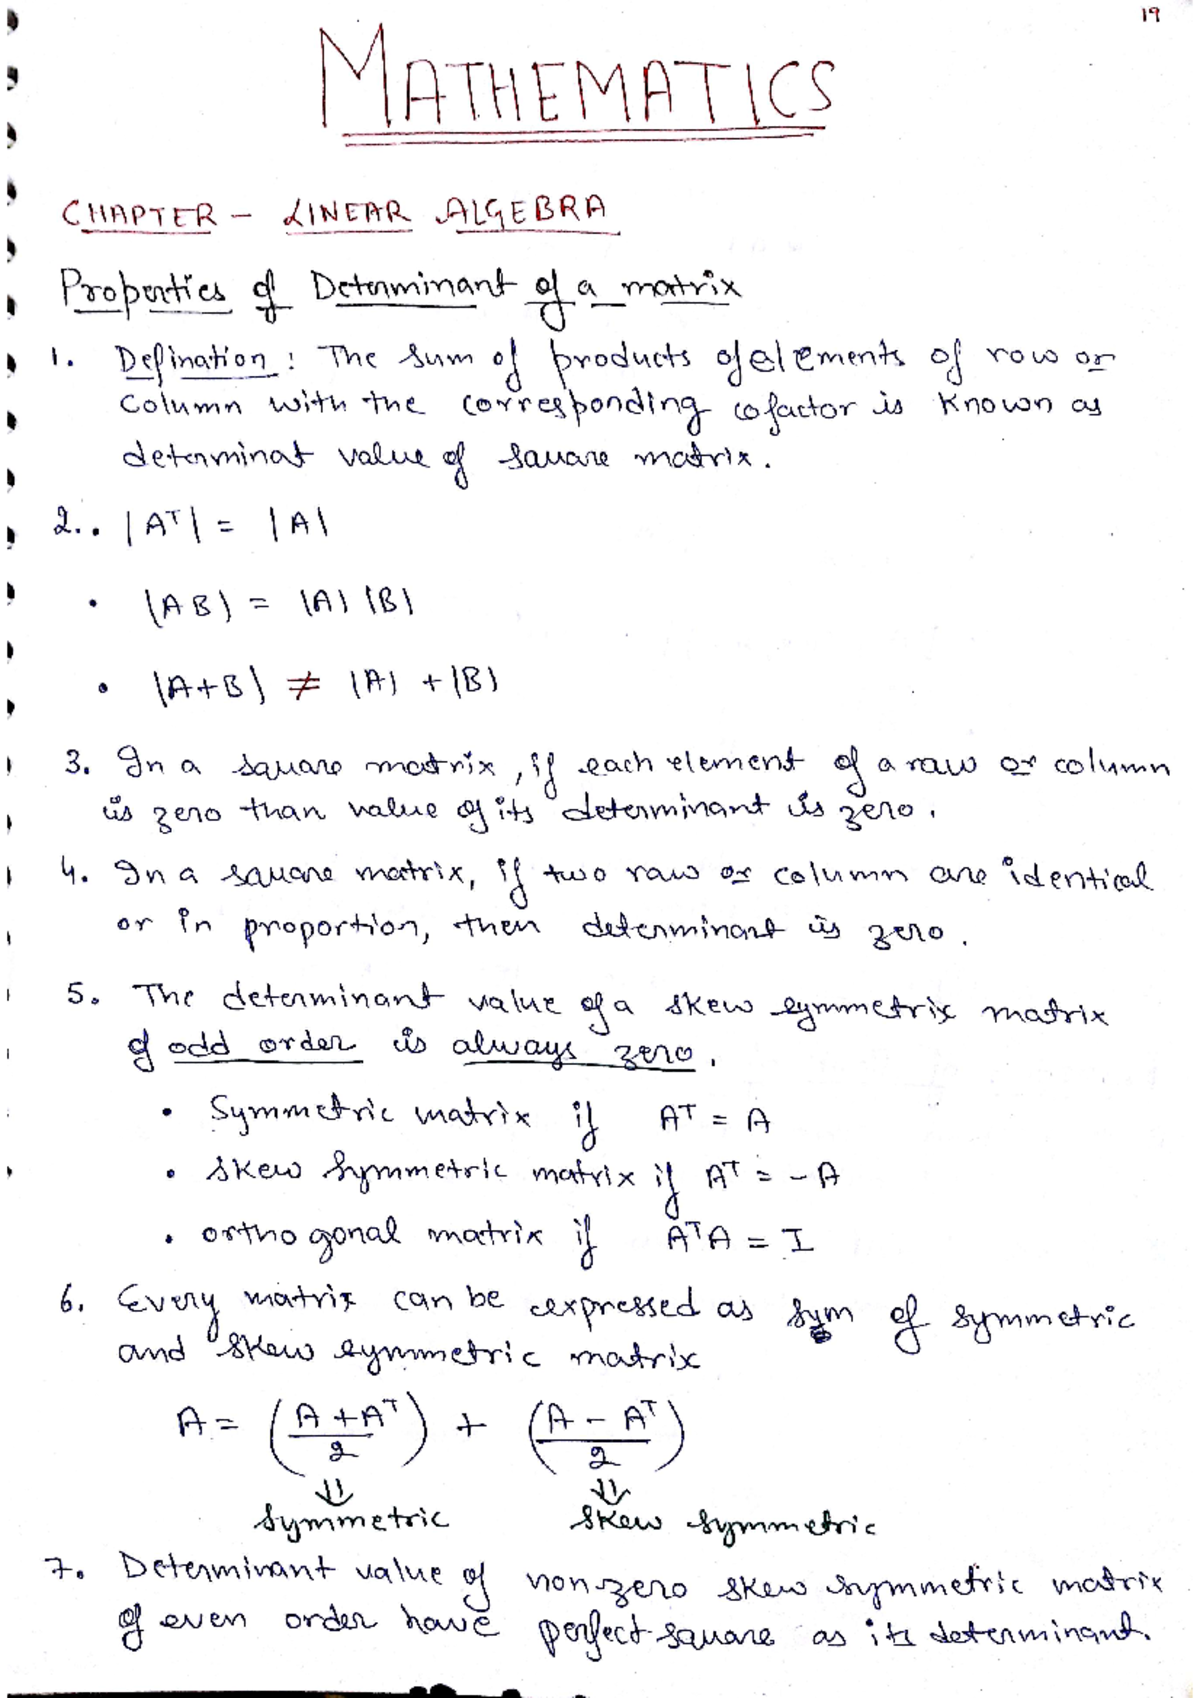 19
MATHEMATICS
CHAPTER - LINEAR ALGEBRA
Properties of Determinant of a matrix
1. Defination : The sum of products of elements of row or
column with the corresponding cofactor is known as
determinat value of square matrix.
2. • |Aᵀ| = |A|
• |AB| = |A| |B|
• |A+B| ≠ |A| + |B|
3. In a square matrix, if each element of a raw or column
is zero than value of its determinant is zero.
4. In a square matrix, if two raw or column are identical
or in proportion, then determinant is zero.
5. The determinant value of a skew symmetrix matrix
of odd order is always zero.
• Symmetric matrix if Aᵀ = A
• skew symmetric matrix if Aᵀ = -A
• orthogonal matrix if AᵀA = I
6. Every matrix can be expressed as sum of symmetric
and skew symmetric matrix
A = (A + Aᵀ / 2) + (A - Aᵀ / 2)
⇓ ⇓
symmetric skew symmetric
7. Determinant value of non-zero skew symmetric matrix
of even order have perfect square as its determinant.